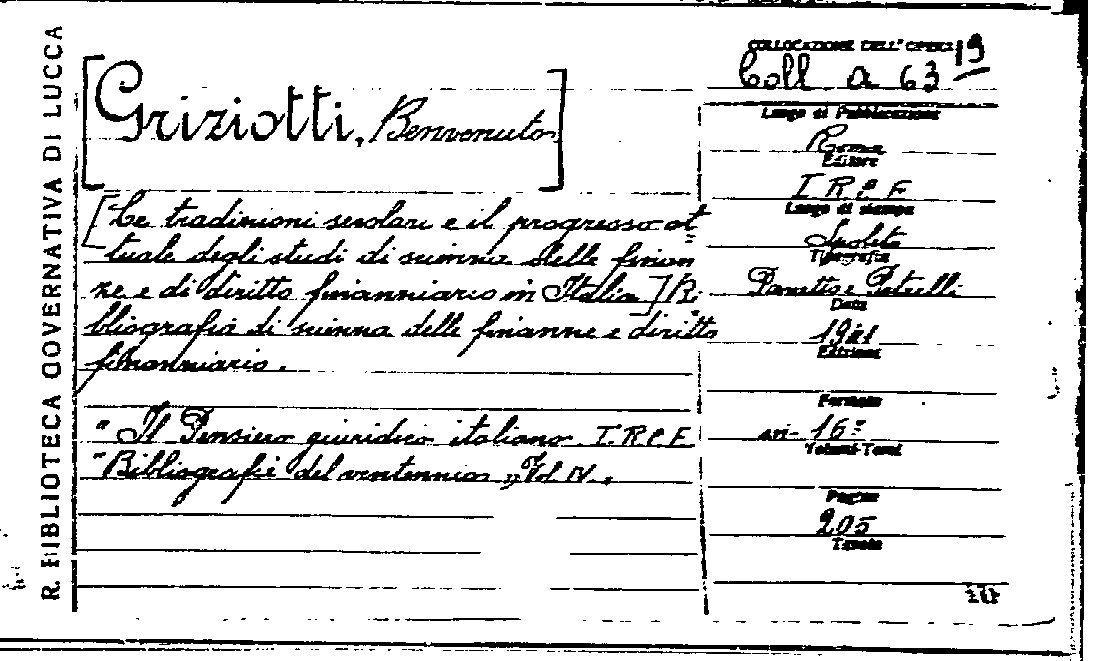 R. BIBLIOTECA GOVERNATIVA DI LUCCA
[Griziotti, Benvenuto]
[Le tradizioni secolari e il progresso at=
tuale degli studi di scienza delle finan
ze e di diritto finanziario in Italia] Bi=
bliografia di scienza delle finanze e diritto
finanziario.
"Il Pensiero giuridico italiano I.R.C.E.
"Bibliografie del ventennio" Vol IV.
COLLOCAZIONE DELL'OPERA
Coll a 63 19
Luogo di Pubblicazione
Roma
Editore
I R C E
Luogo di stampa
Spoleto
Tipografia
Panetto e Petrelli
Data
1941
Edizione
Formato
in-16=
Volumi-Tomi
Pagine
205
Tavole